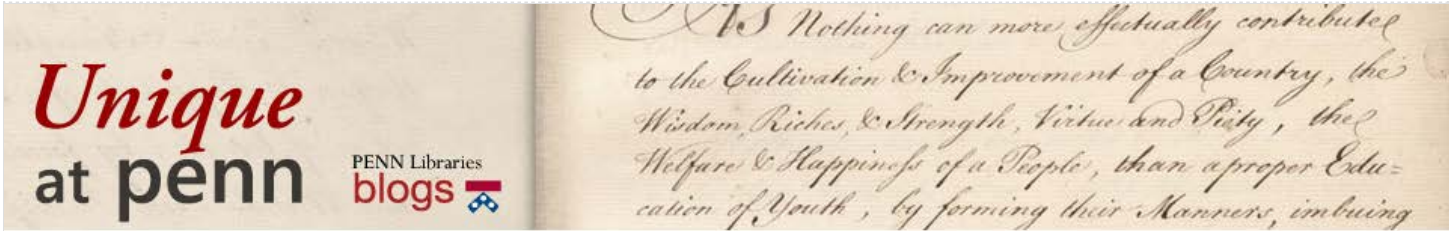 Unique
at penn
PENN Libraries
blogs
AS Nothing can more effectually contribute
to the Cultivation & Improvement of a Country, the
Wisdom, Riches, & Strength, Virtue and Piety, the
Welfare & Happiness of a People, than a proper Edu=
cation of Youth, by forming their Manners, imbuing